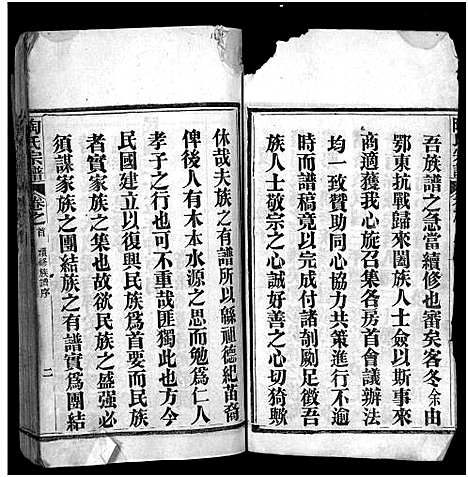 吾族譜之急當續修也審矣客冬余由
鄂東抗戰歸來闔族人士僉以斯事來
商適獲我心旋召集各房首會議辦法
均一致贊助同心協力共策進行不逾
時而譜稿竟以完成付諸剞劂足徵吾
族人士敬宗之心誠好善之心切猗歟
休哉夫族之有譜所以緜祖德紀苗裔
俾後人有木本水源之思而勉為仁人
孝子之行也可不重哉匪獨此也方今
民國建立以復興民族為首要而民族
者實家族之集也故欲民族之盛强必
須謀家族之團結族之有譜實為團結
陶氏宗譜
卷之首
續修族譜序
二